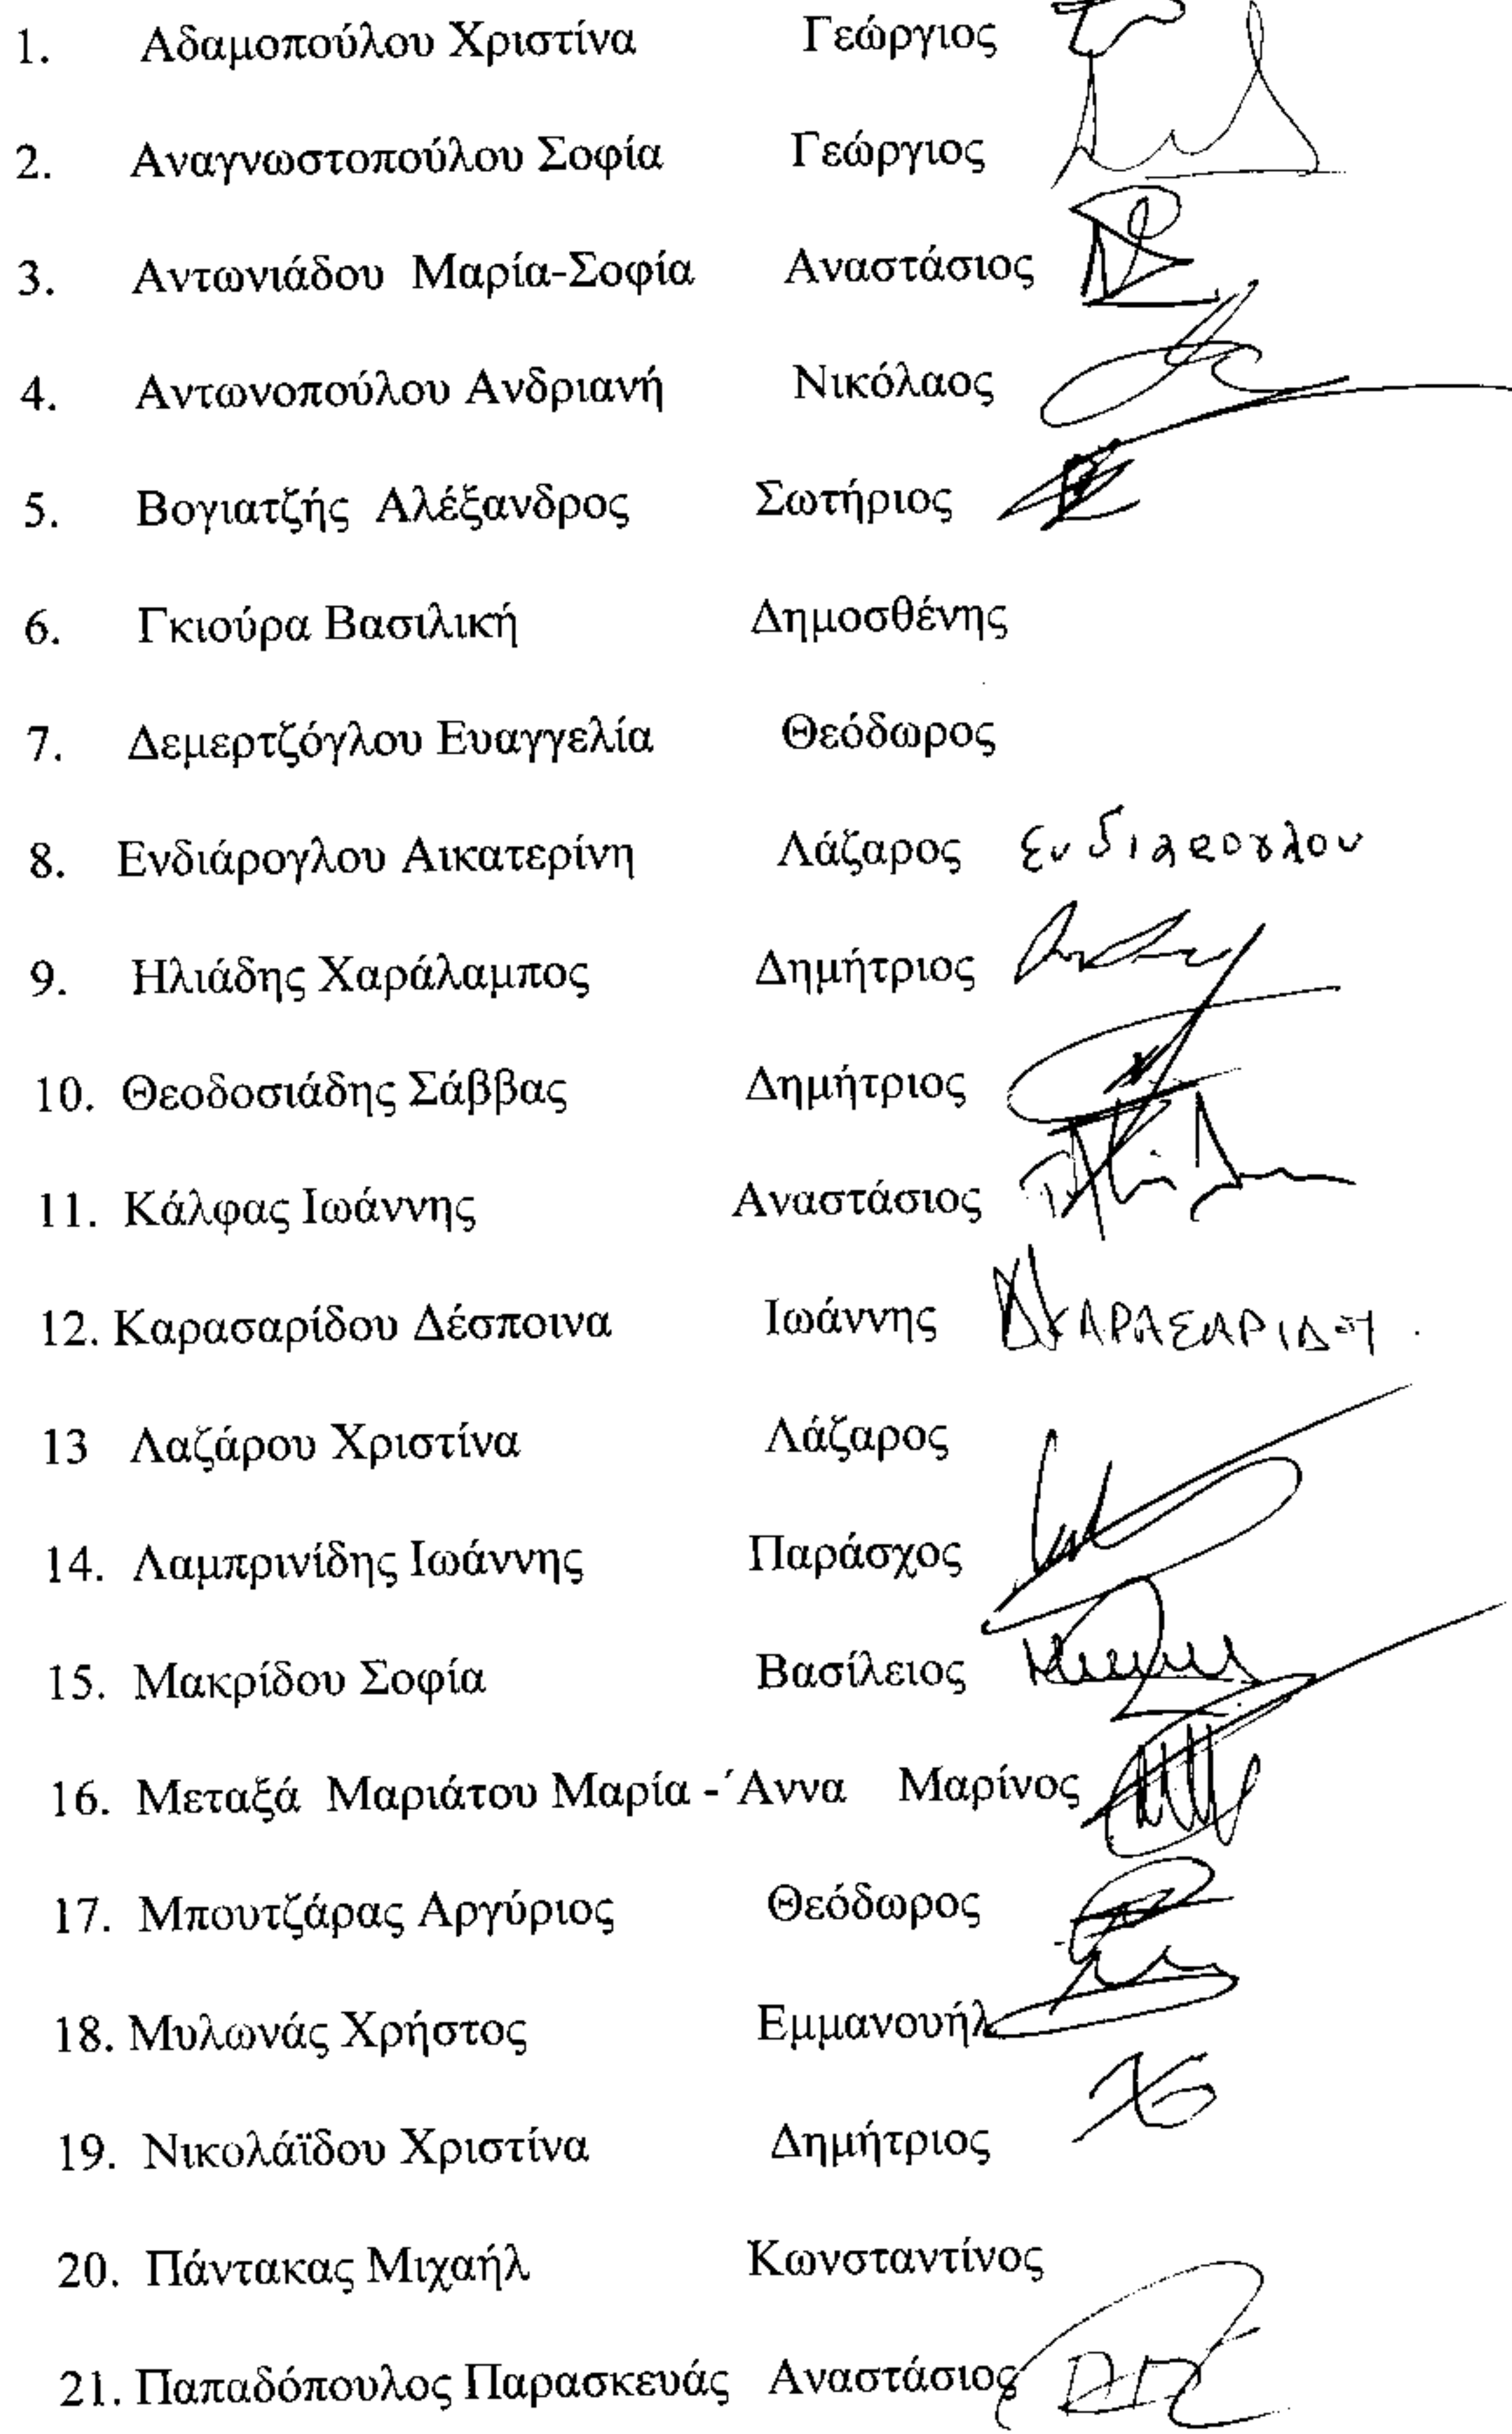 1. Αδαμοπούλου Χριστίνα Γεώργιος
2. Αναγνωστοπούλου Σοφία Γεώργιος
3. Αντωνιάδου Μαρία-Σοφία Αναστάσιος
4. Αντωνοπούλου Ανδριανή Νικόλαος
5. Βογιατζής Αλέξανδρος Σωτήριος
6. Γκιούρα Βασιλική Δημοσθένης
7. Δεμερτζόγλου Ευαγγελία Θεόδωρος
8. Ενδιάρογλου Αικατερίνη Λάζαρος Ενδιαρογλου
9. Ηλιάδης Χαράλαμπος Δημήτριος
10. Θεοδοσιάδης Σάββας Δημήτριος
11. Κάλφας Ιωάννης Αναστάσιος
12. Καρασαρίδου Δέσποινα Ιωάννης
13 Λαζάρου Χριστίνα Λάζαρος
14. Λαμπρινίδης Ιωάννης Παράσχος
15. Μακρίδου Σοφία Βασίλειος
16. Μεταξά Μαριάτου Μαρία -΄Αννα Μαρίνος
17. Μπουτζάρας Αργύριος Θεόδωρος
18. Μυλωνάς Χρήστος Εμμανουήλ
19. Νικολάϊδου Χριστίνα Δημήτριος
20. Πάντακας Μιχαήλ Κωνσταντίνος
21. Παπαδόπουλος Παρασκευάς Αναστάσιος